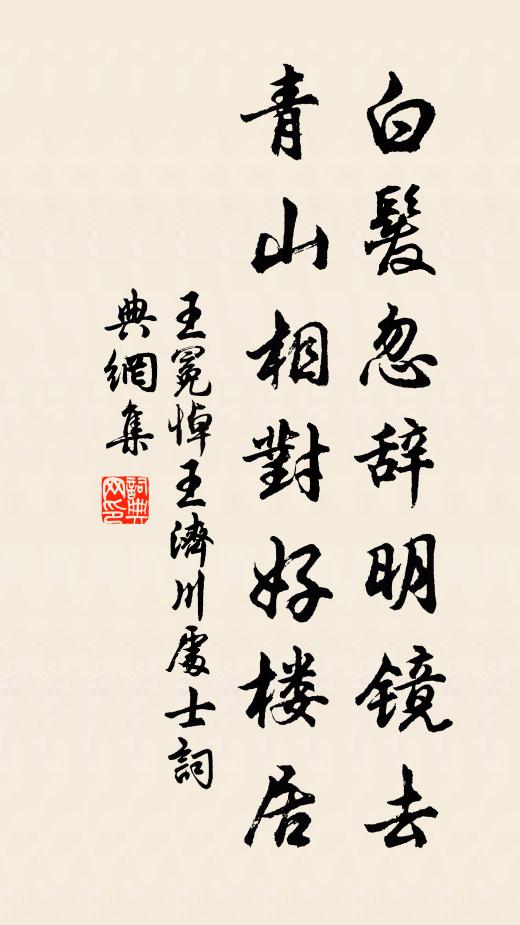 白髮忽辞明镜去
青山相對好楼居
王冕悼王濟川處士詞
典網集
詞典网印